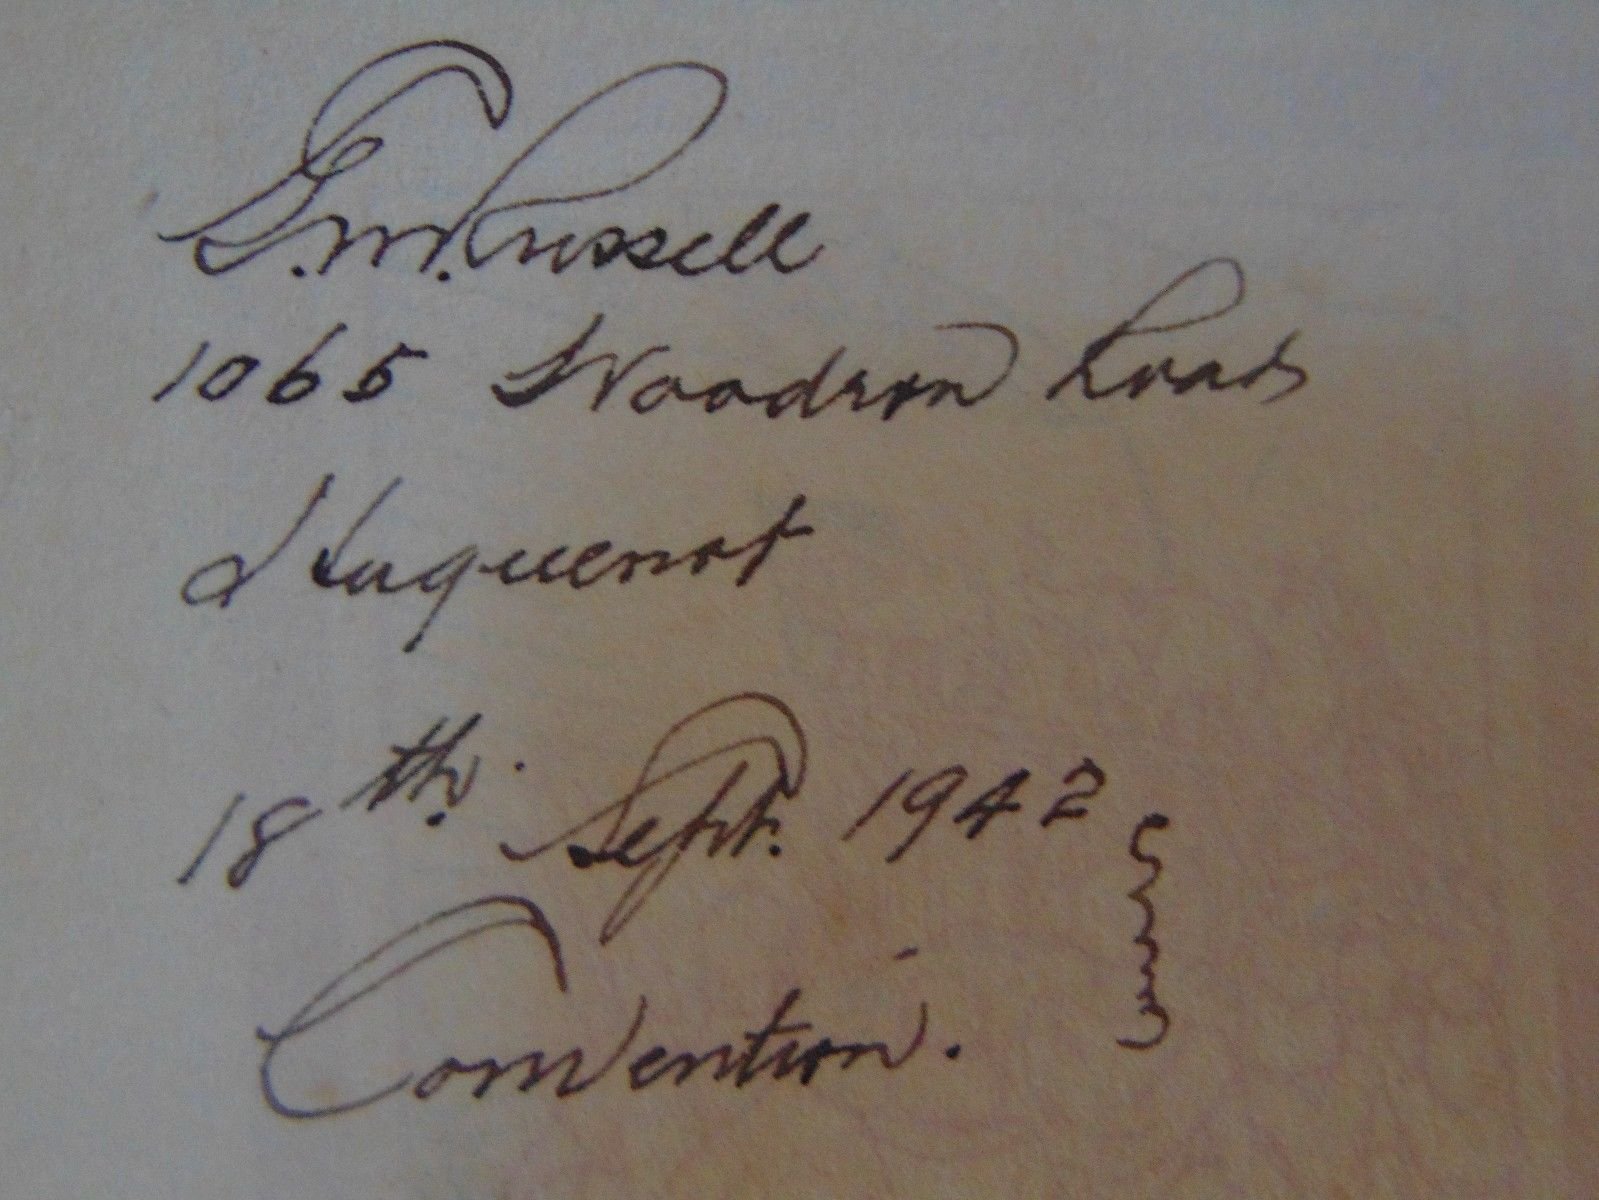 G.M. Russell
1065 Woodrow Road
Huguenot
18th. Sept. 1942
Convention.